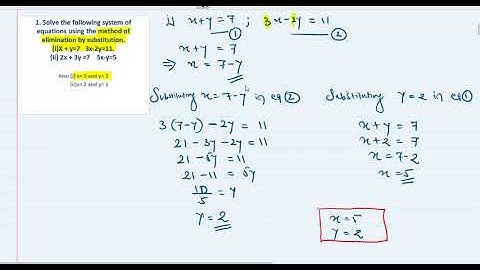 1. Solve the following system of
equations using the method of
elimination by substitution.
(i)X + y=7 3x-2y=11.
(ii) 2x + 3y =7 3x-y=5
Ans:i) x= 5 and y= 2
(ii)x= 2 and y= 1
i) x+y=7 ; 3x-2y=11
① ②
x+y = 7
⇒ x = 7-y
Substituting x=7-y in eq ②
3(7-y) -2y = 11
21 -3y -2y = 11
21 -5y = 11
21 -11 = 5y
10/5 = y
y = 2
Substituting y=2 in eq ①
x+y = 7
x+2 = 7
x = 7-2
x = 5
x=5
y=2